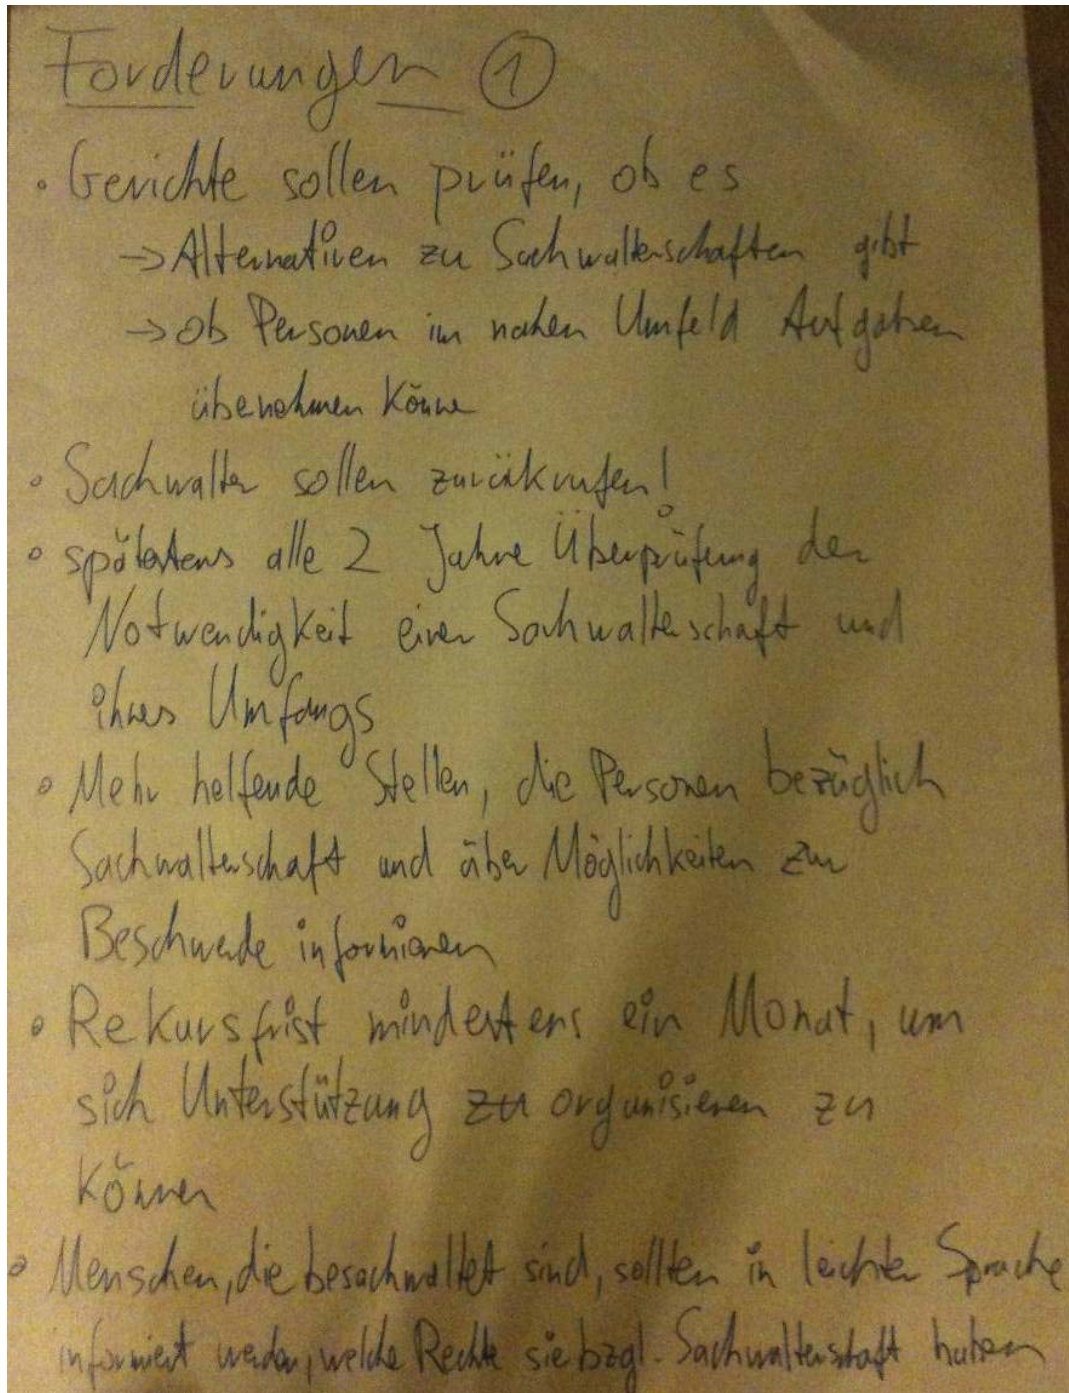 Forderungen ①
• Gerichte sollen prüfen, ob es
→ Alternativen zu Sachwalterschaften gibt
→ ob Personen im nahen Umfeld Aufgaben
übernehmen könne
• Sachwalter sollen zurükrufen!
• spätestens alle 2 Jahre Überprüfung der
Notwendigkeit einer Sachwalterschaft und
ihres Umfangs
• Mehr helfende Stellen, die Personen bezüglich
Sachwalterschaft und über Möglichkeiten zur
Beschwerde informieren
• Rekursfrist mindestens ein Monat, um
sich Unterstützung zu organisieren zu
können
• Menschen, die besachwaltet sind, sollten in leichter Sprache
informiert werden, welche Rechte sie bzgl. Sachwalterschaft haben